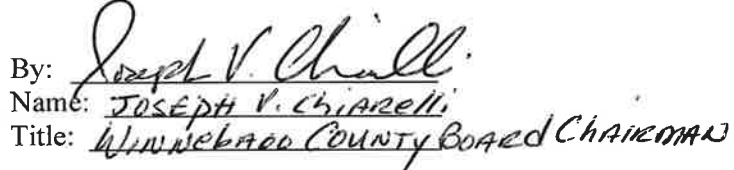 By: Joseph V. Chiarelli
Name: JOSEPH V. ChiARElli
Title: WINNEbAGO COUNTY BOARD ChAIRMAN